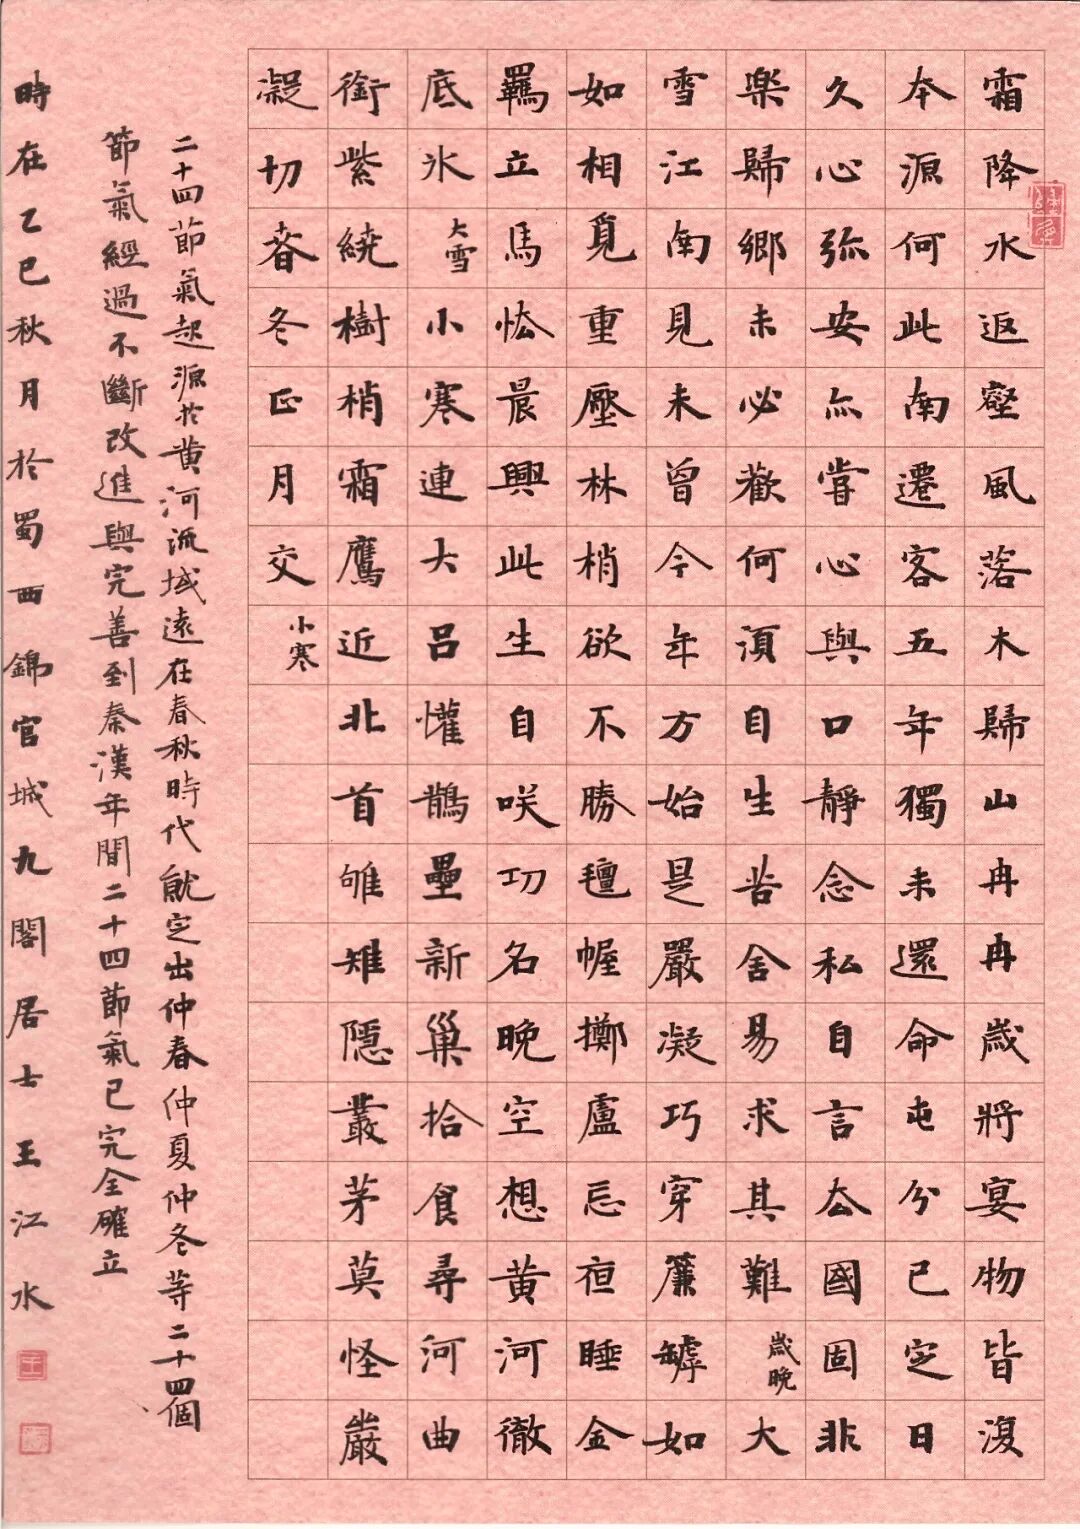 霜降水返壑風落木歸山冉冉歲將宴物皆復
本源何此南遷客五年獨未還命屯分已定日
久心弥安亦嘗心與口靜念私自言去國固非
樂歸鄉未必歡何須自生苦舍易求其難歲晚大
雪江南見未曾今年方始是嚴凝巧穿簾罅如
如相覓重壓林梢欲不勝氊幄擲盧忘夜睡金
羈立馬怯晨興此生自咲功名晚空想黃河徹
底氷大雪小寒連大呂懽鵲壘新巢拾食尋河曲
銜紫繞樹梢霜鷹近北首雊雉隱叢茅莫怪嚴
凝切春冬正月交小寒
二十四節氣起源於黃河流域遠在春秋時代就定出仲春仲夏仲冬等二十四個
節氣經過不斷改進與完善到秦漢年間二十四節氣已完全確立
時在乙巳秋月於蜀西錦官城九閣居士王江水